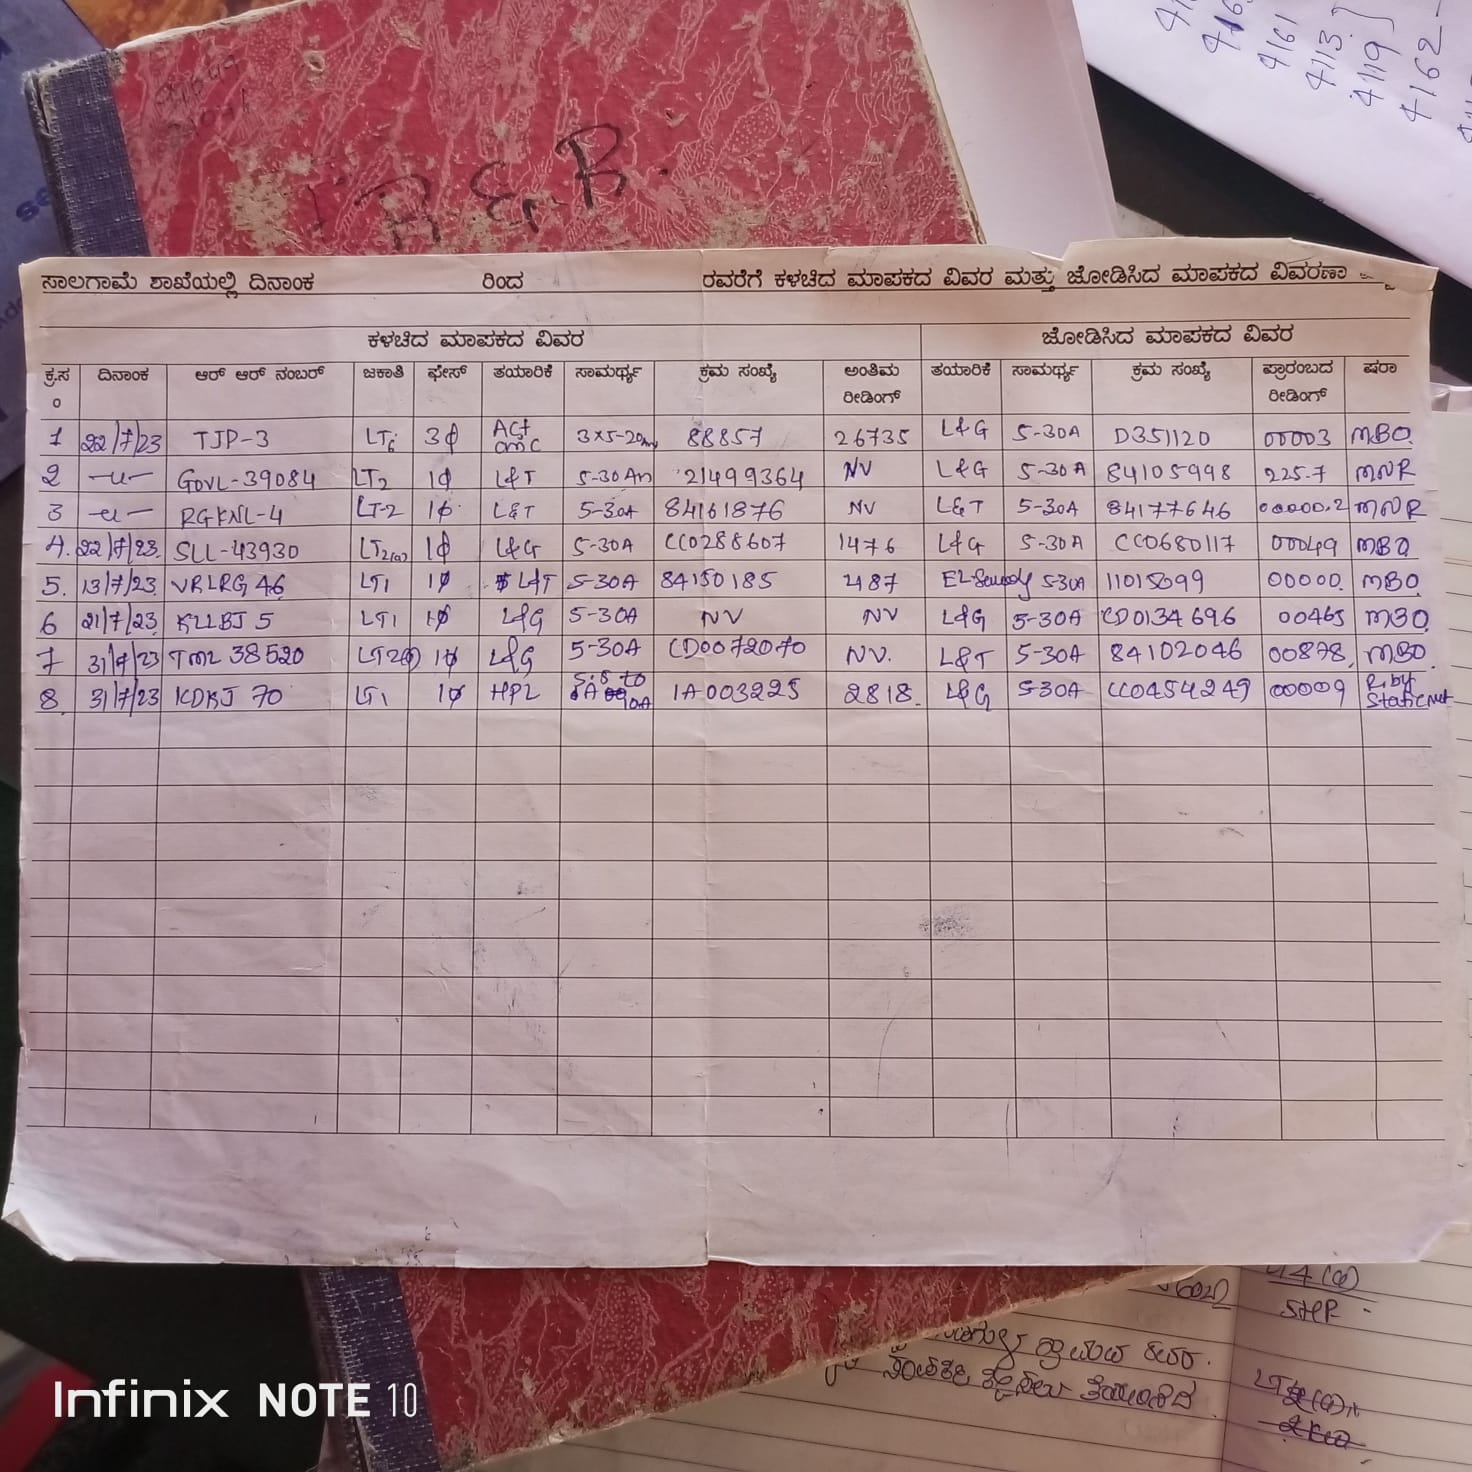 R.E.B.
4161
4113
4119
4162
ಸಾಲಗಾಮೆ ಶಾಖೆಯಲ್ಲಿ ದಿನಾಂಕ ರಿಂದ ರವರೆಗೆ ಕಳಚಿದ ಮಾಪಕದ ವಿವರ ಮತ್ತು ಜೋಡಿಸಿದ ಮಾಪಕದ ವಿವರಣಾ
ಕಳಚಿದ ಮಾಪಕದ ವಿವರ ಜೋಡಿಸಿದ ಮಾಪಕದ ವಿವರ
ಕ್ರ.ಸ ದಿನಾಂಕ ಆರ್ ಆರ್ ನಂಬರ್ ಜಕಾತಿ ಫೇಸ್ ತಯಾರಿಕೆ ಸಾಮರ್ಥ್ಯ ಕ್ರಮ ಸಂಖ್ಯೆ ಅಂತಿಮ ತಯಾರಿಕೆ ಸಾಮರ್ಥ್ಯ ಕ್ರಮ ಸಂಖ್ಯೆ ಪ್ರಾರಂಬದ ಷರಾ
ಂ ರೀಡಿಂಗ್ ರೀಡಿಂಗ್
1 22/7/23 TJP-3 LT6 3ϕ 3x5-20 88857 26735 L&G 5-30A D351120 00003 MBO
2 -u- GOVL-39084 LT2 1ϕ L&T 5-30Am 21499364 NV L&G 5-30A 84105998 225.7 MNR
3 -u- RGKNL-4 LT-2 1ϕ L&T 5-30A 84161876 NV L&T 5-30A 84177646 00000.2 MNR
4. 22/7/23 SLL-43930 LT2(a) 1ϕ L&G 5-30A CC0288607 1476 L&G 5-30A CC0680117 00049 MBO
5. 13/7/23 VRLRG 46 LT1 1ϕ L&T 5-30A 84150185 2487 5-30A 11015099 00000 MBO
6 21/7/23 KLLBJ 5 LT1 1ϕ L&G 5-30A NV NV L&G 5-30A CD0134696 00465 MBO
7 31/7/23 TML 38520 1ϕ L&G 5-30A CD0072070 NV. L&T 5-30A 84102046 00878 MBO
8. 31/7/23 KDBJ 70 LT1 1ϕ HPL 1A003225 2818. L&G 5-30A CC0454249 00009 R.by
Static
STIR
Infinix NOTE 10